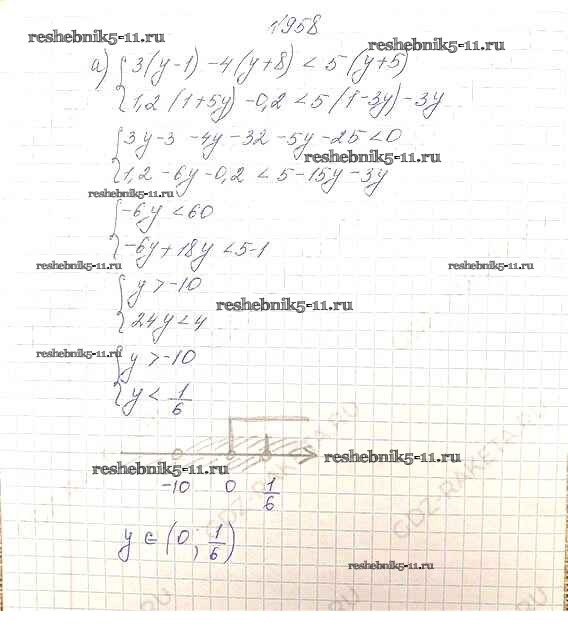 1958
reshebnik5-11.ru reshebnik5-11.ru
а) 3(y-1) -4(y+8) < 5(y+5)
1,2(1+5y) -0,2 < 5(1-3y) -3y
3y-3 -4y -32 -5y -25 <0
reshebnik5-11.ru
1,2 -6y -0,2 < 5 -15y -3y
reshebnik5-11.ru
-6y < 60
-6y + 18y < 5-1
reshebnik5-11.ru reshebnik5-11.ru
y > -10
reshebnik5-11.ru
24y < 4
reshebnik5-11.ru
y > -10
y < 1/6
GDZ-RAKETA.RU
reshebnik5-11.ru reshebnik5-11.ru
-10 0 1/6
y ∈ (0; 1/6)
reshebnik5-11.ru